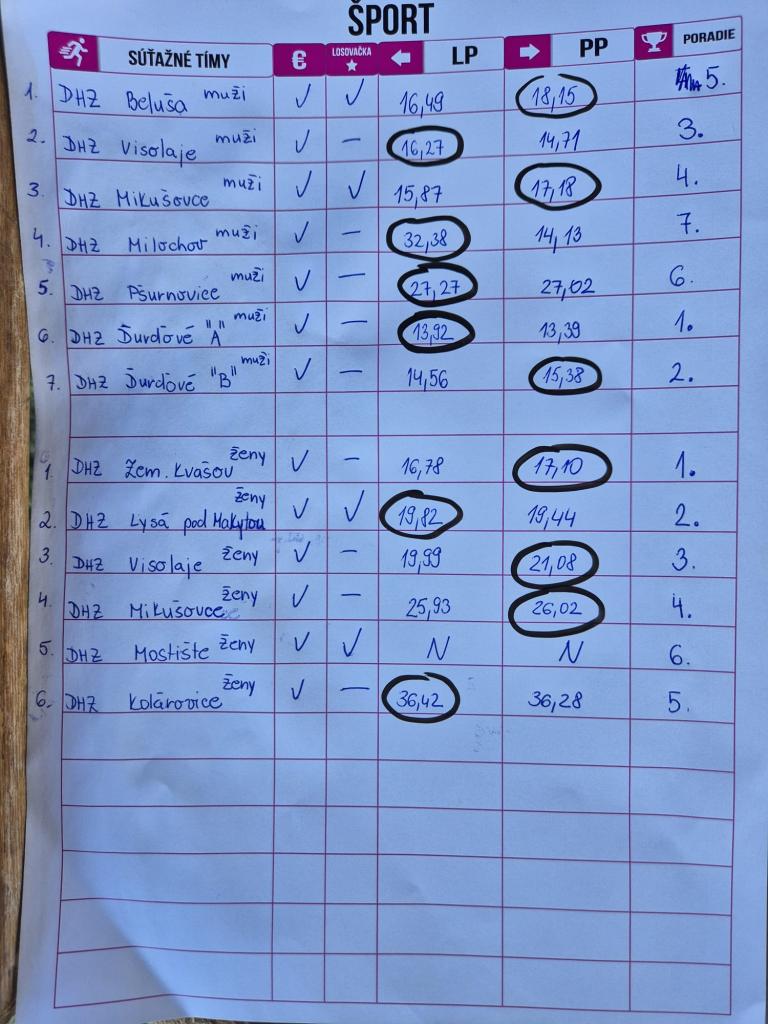 ŠPORT
SÚŤAŽNÉ TÍMY € LOSOVAČKA LP PP PORADIE
1. DHZ Beluša muži ✓ ✓ 16,49 18,15 5.
2. DHZ Visolaje muži ✓ – 16,27 14,71 3.
3. DHZ Mikušovce muži ✓ ✓ 15,87 17,18 4.
4. DHZ Milochov muži ✓ – 32,38 14,13 7.
5. DHZ Pšurnovice muži ✓ – 27,27 27,02 6.
6. DHZ Ďurďové "A" muži ✓ – 13,92 13,39 1.
7. DHZ Ďurďové "B" muži ✓ – 14,56 15,38 2.
1. DHZ Zem. Kvašov ženy ✓ – 16,78 17,10 1.
2. DHZ Lysá pod Makytou ženy ✓ ✓ 19,82 19,44 2.
3. DHZ Visolaje ženy ✓ – 19,99 21,08 3.
4. DHZ Mikušovce ženy ✓ – 25,93 26,02 4.
5. DHZ Mostište ženy ✓ ✓ N N 6.
6. DHZ Kolárovice ženy ✓ – 36,42 36,28 5.